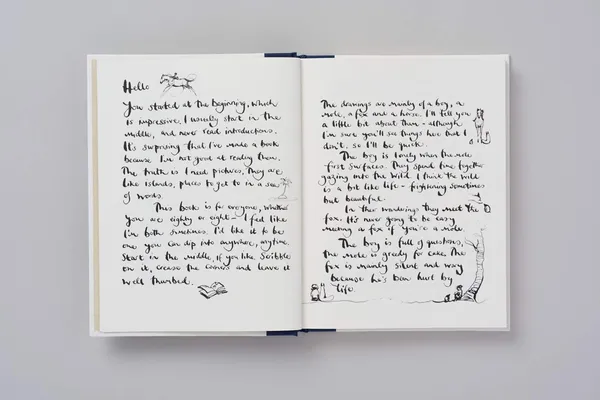 Hello
You started at the beginning, which
is impressive. I usually start in the
middle, and never read introductions.
It's surprising that I've made a book
because I'm not good at reading them.
The truth is I need pictures, they are
like islands, places to get to in a sea
of words.
This book is for everyone, whether
you are eighty or eight – I feel like
I'm both sometimes. I'd like it to be
one you can dip into anywhere, anytime.
Start in the middle, if you like. Scribble
on it, crease the corners and leave it
well thumbed.
The drawings are mainly of a boy, a
mole, a fox and a horse. I'll tell you
a little bit about them – although
I'm sure you'll see things here that I
don't, so I'll be quick.
The boy is lonely when the mole
first surfaces. They spend time together
gazing into the wild. I think the wild
is a bit like life – frightening sometimes
but beautiful.
In their wanderings they meet the
fox. It's never going to be easy
meeting a fox if you're a mole.
The boy is full of questions,
the mole is greedy for cake. The
fox is mainly silent and wary
because he's been hurt by
life.